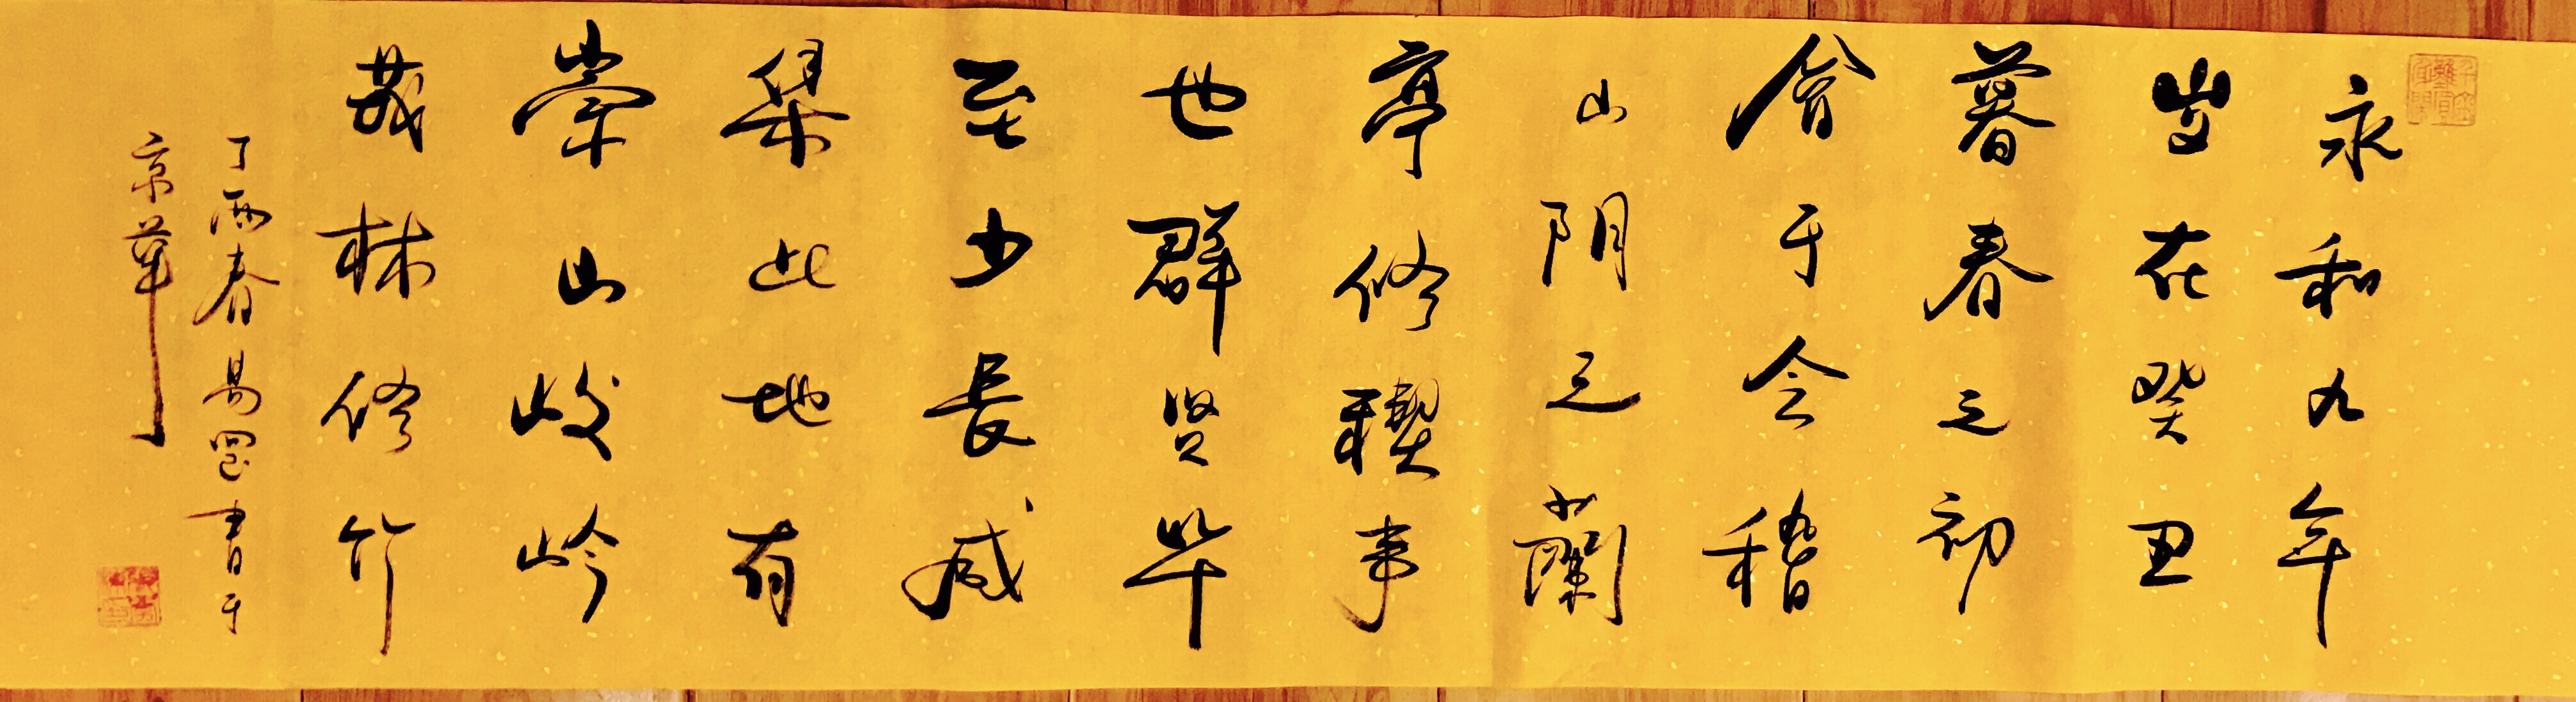 永和九年
岁在癸丑
暮春之初
會于会稽
山阴之蘭
亭修禊事
也群贤毕
至少長咸
集此地有
崇山峻岭
茂林修竹
丁酉春易罡書于
京華